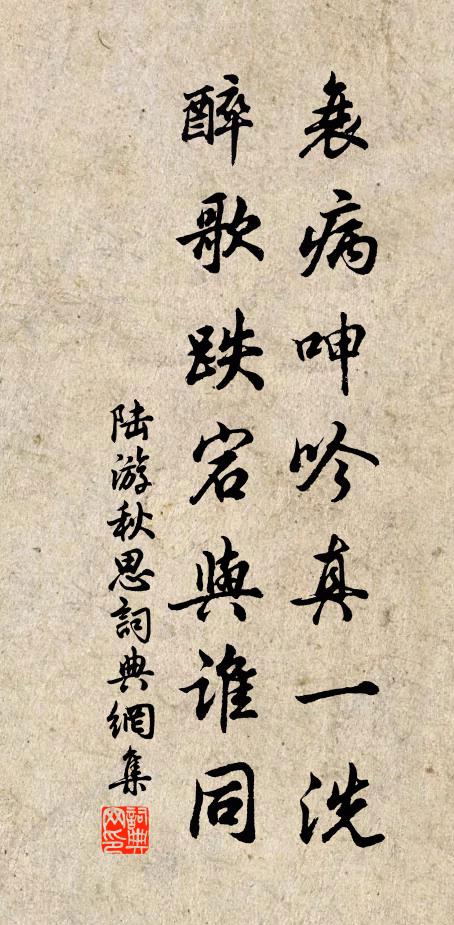 衰病呻吟真一洗
醉歌跌宕與誰同
陸游秋思詞典網集
詞典网印